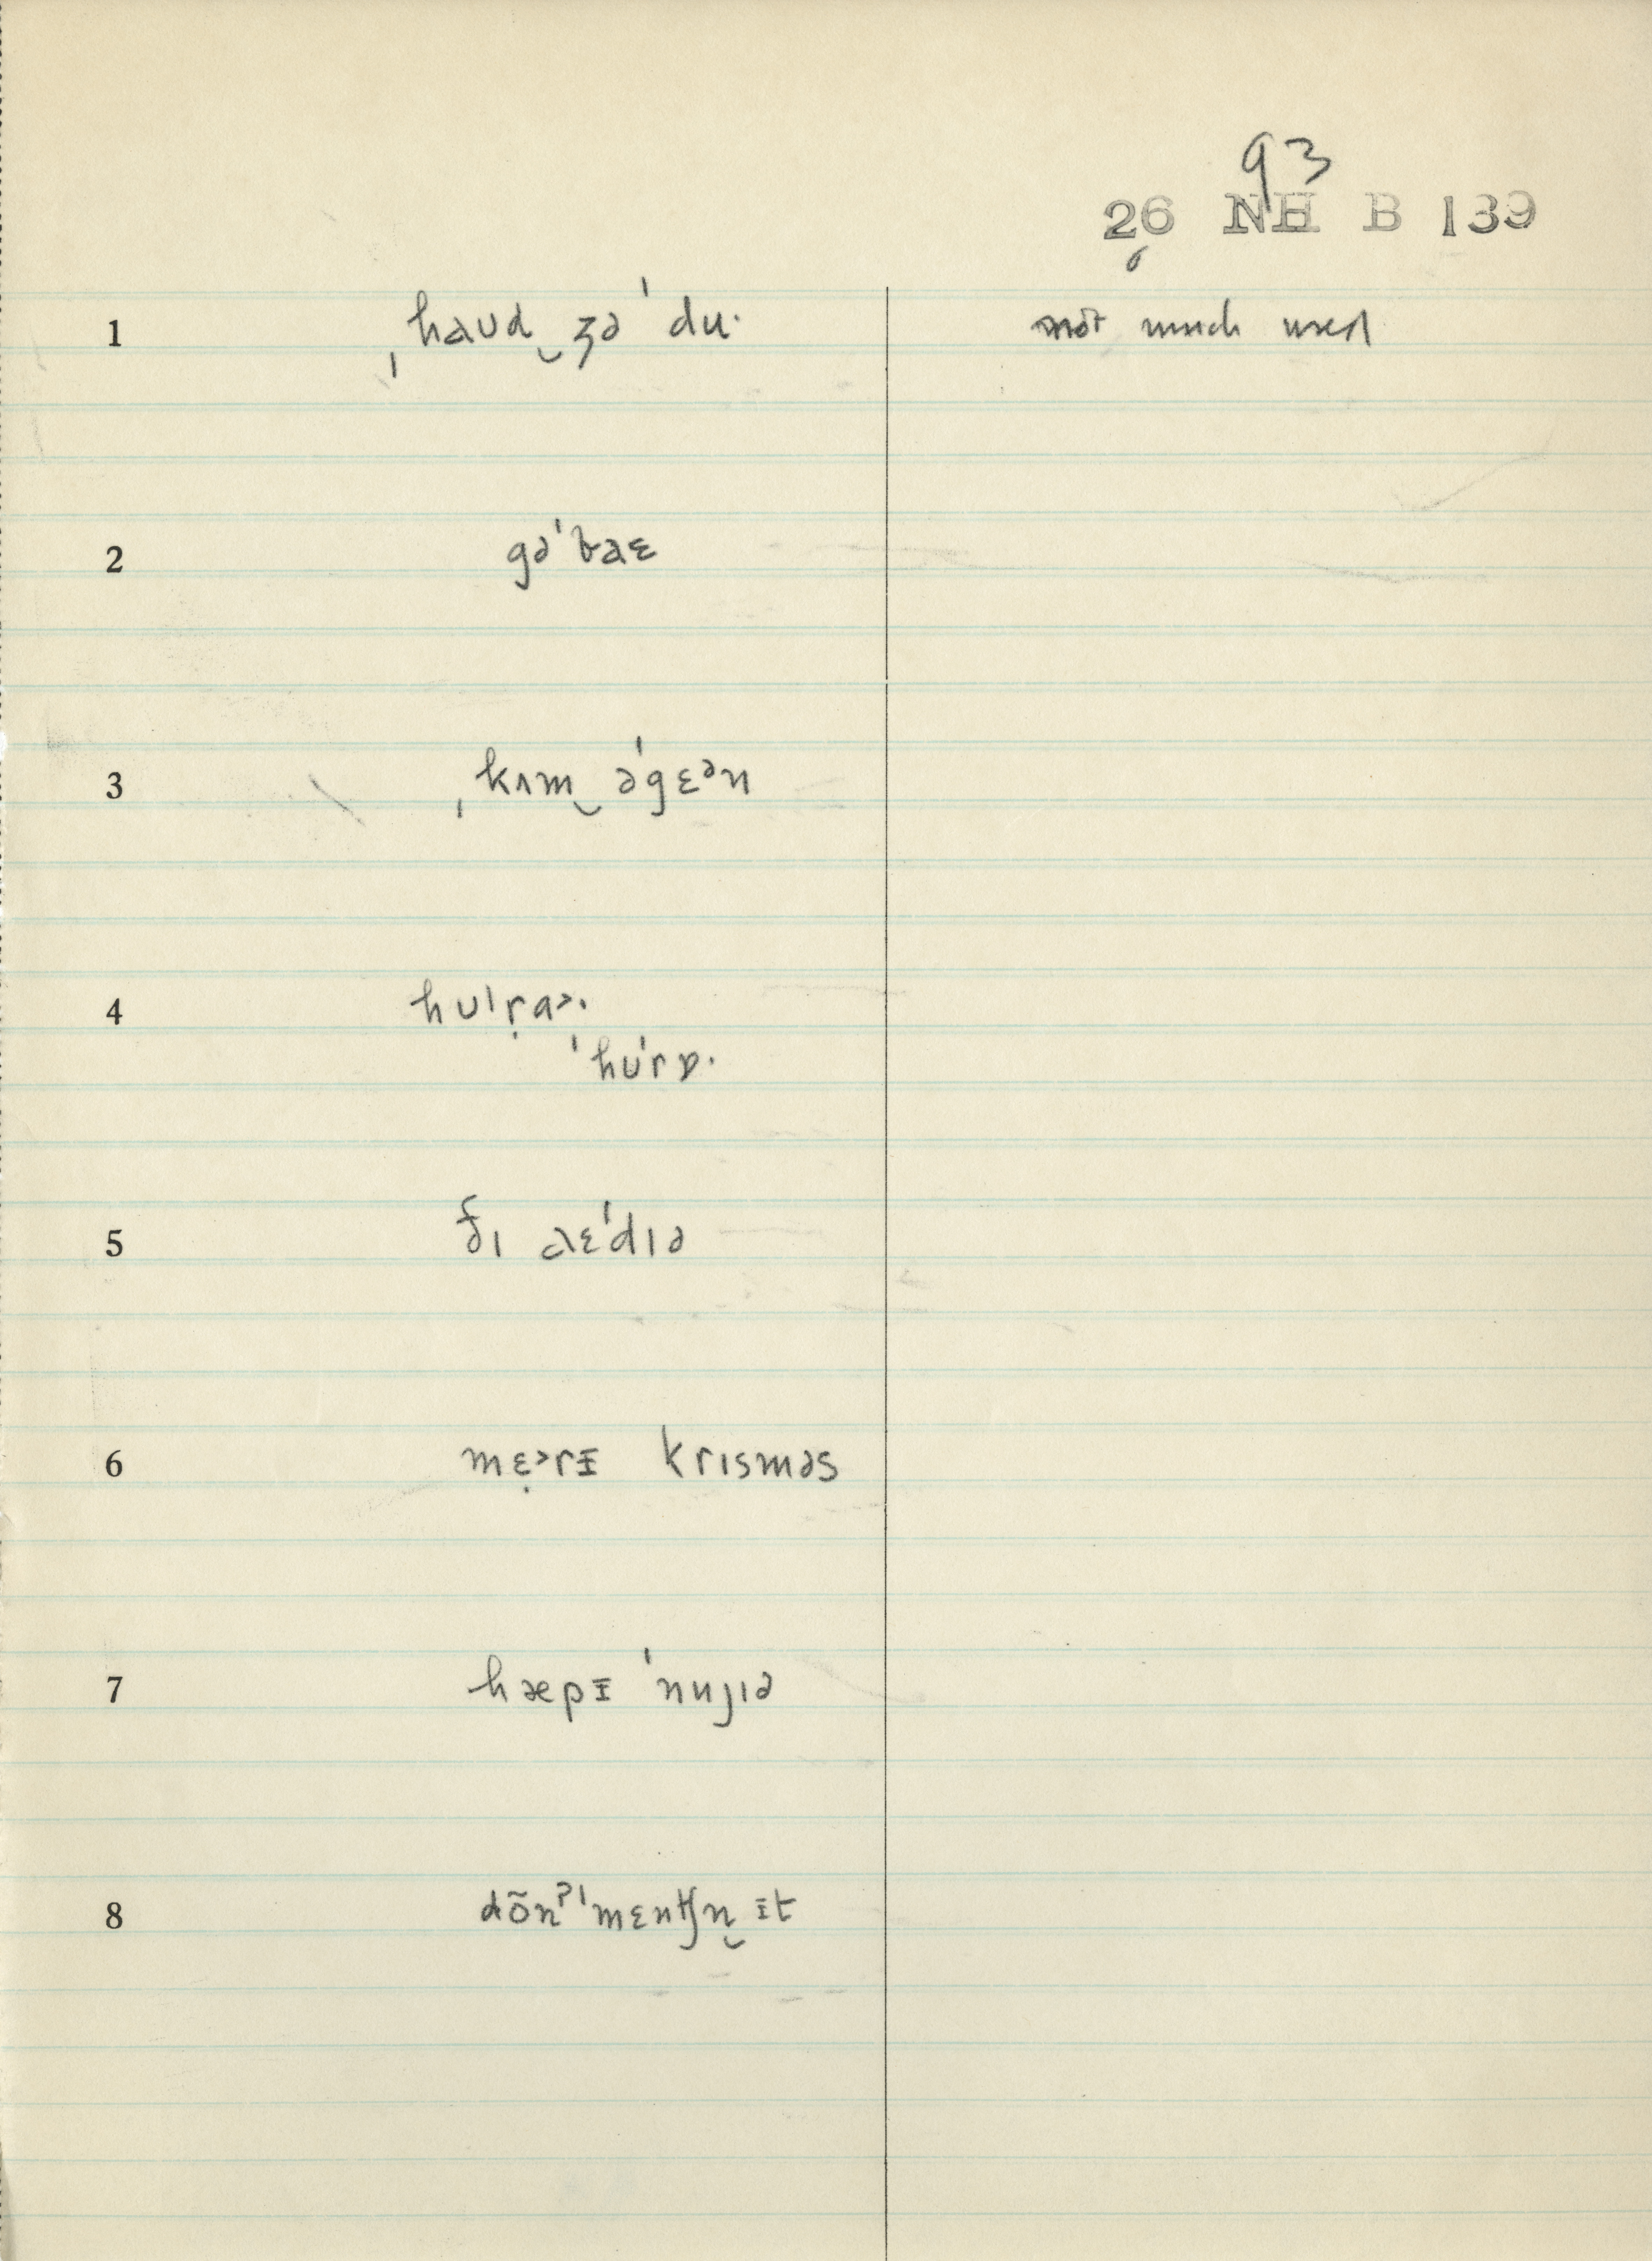 93
26 NH B 139
6
1 ˌhaud‿ʒə ˈdu· not much used
2 gəˈbaɛ
3 ˌkʌm‿əˈgɛᵊn
4 hʊˈṛɑ˃·
ˈhʊˈrɒ·
5 ðɪ aɛˈdɪə
6 mɛ̣˃rᵻ krɪsməs
7 hæpᵻ ˈnujɪə
8 dõnˀˈmɛnʧn̩‿ᵻt